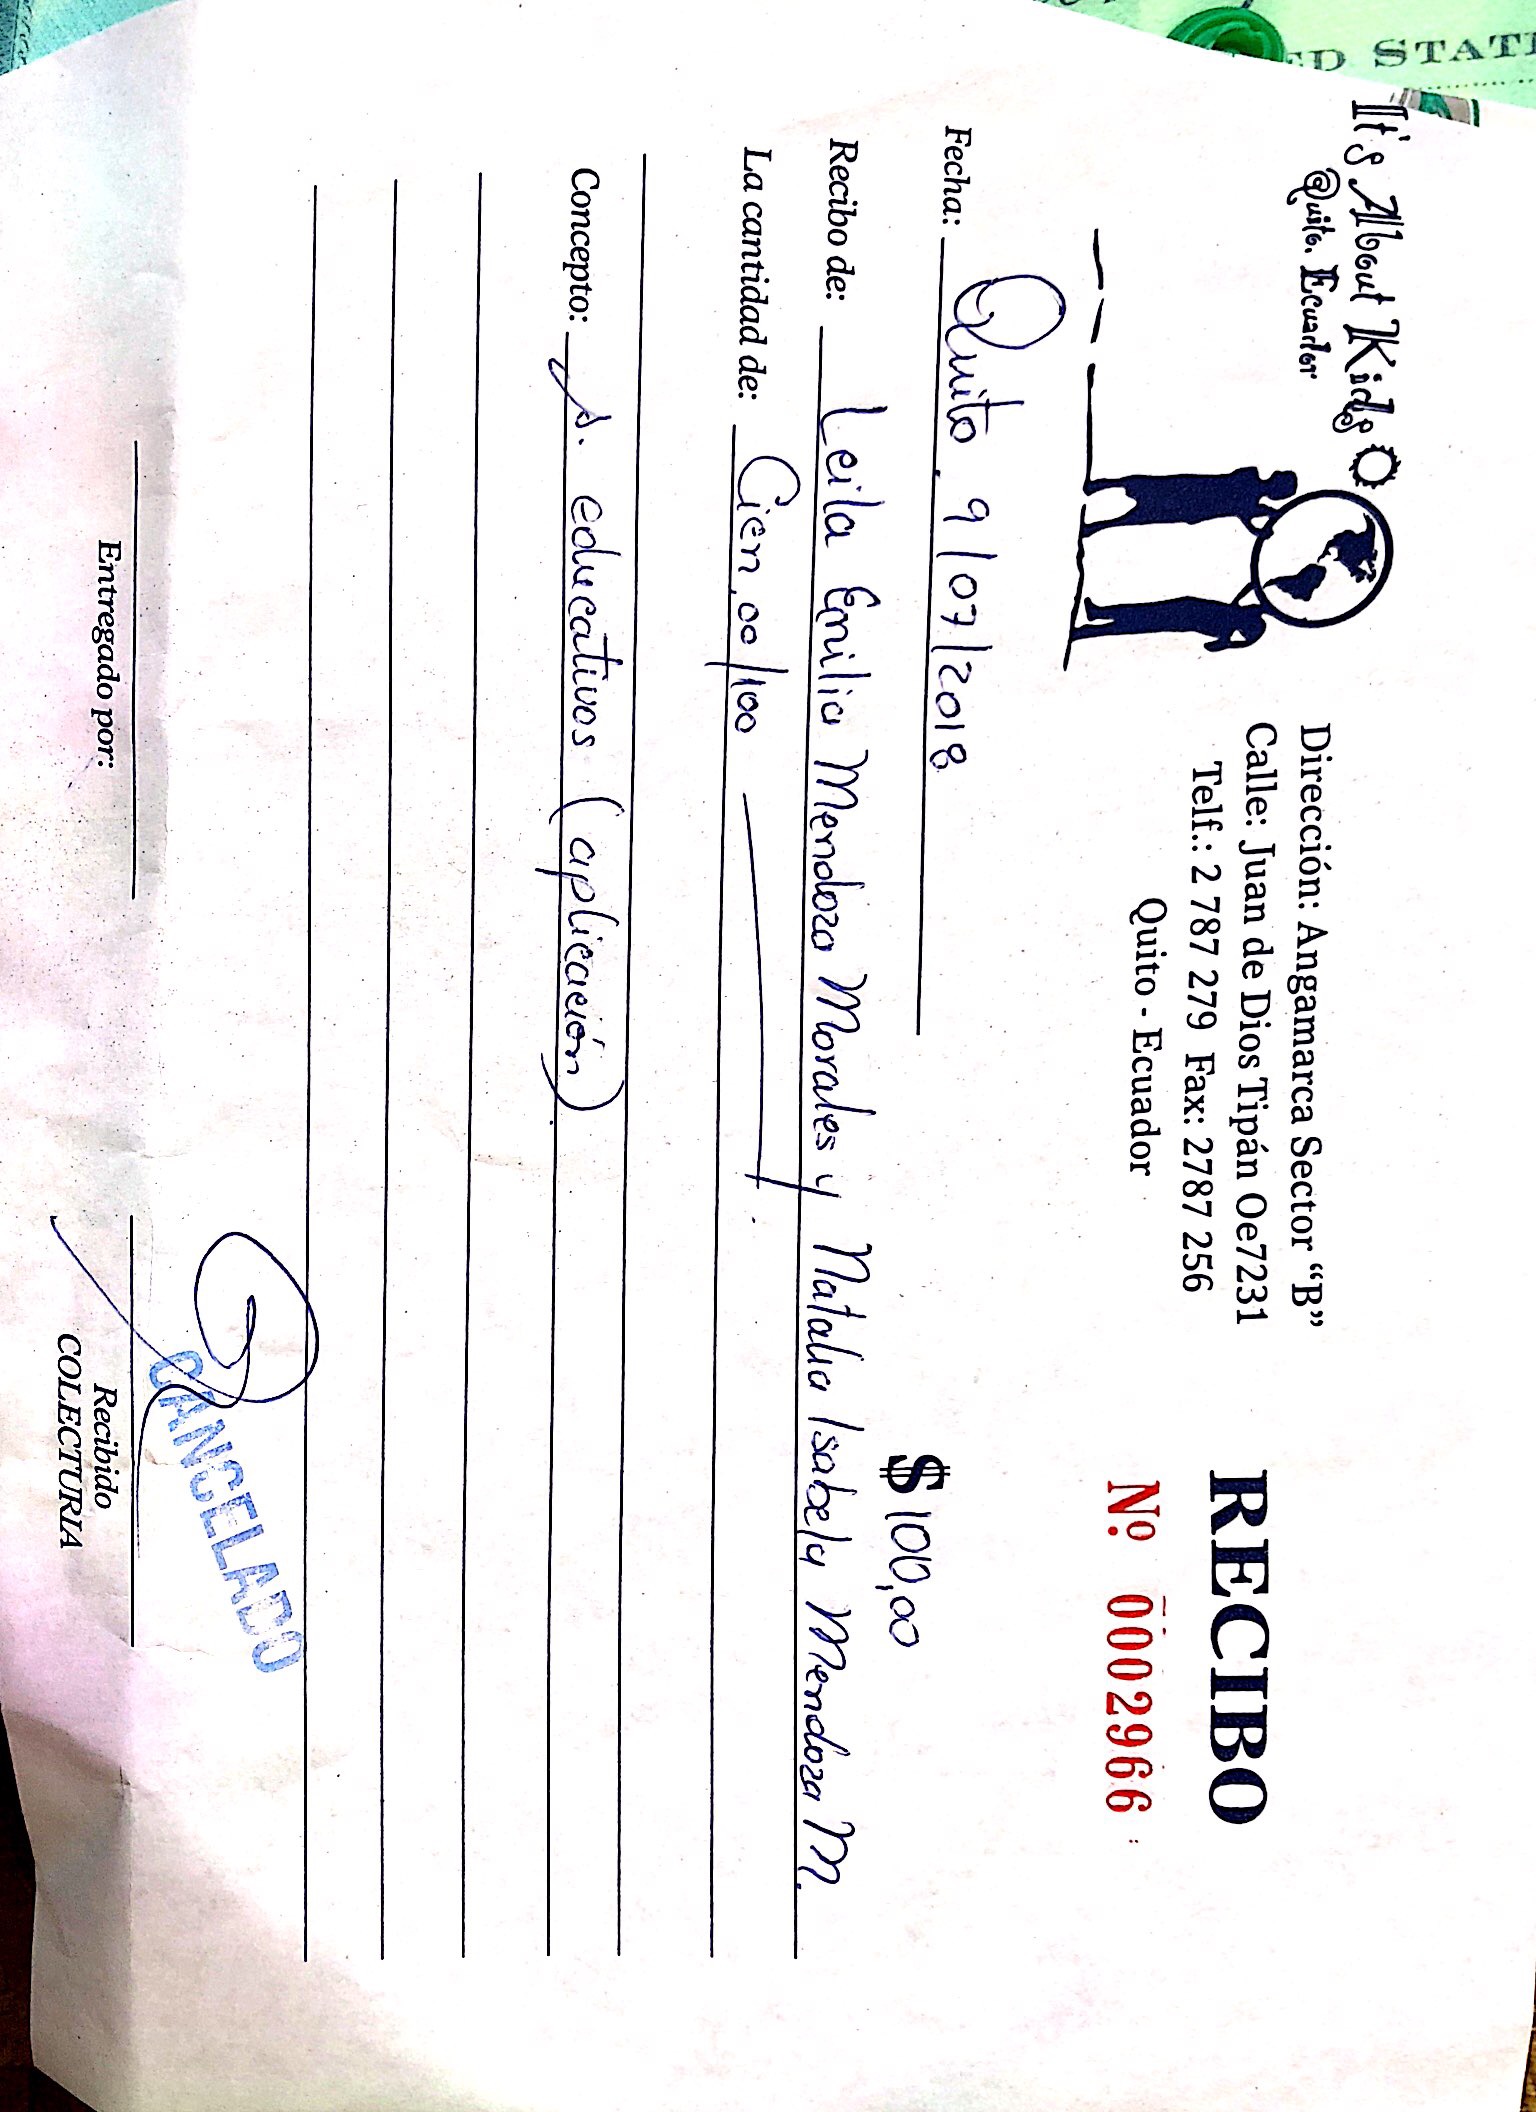 ED STATE
It's About Kids
Quito. Ecuador
Dirección: Angamarca Sector “B”
Calle: Juan de Dios Tipán Oe7231
Telf.: 2 787 279 Fax: 2787 256
Quito - Ecuador
RECIBO
Nº 0002966
Fecha: Quito, 9/07/2018
$ 100,00
Recibo de: Leila Emilia Mendoza Morales y Natalia Isabely Mendoza M.
La cantidad de: Cien,00/100
Concepto: s. educativos (aplicación)
CANCELADO
Entregado por:
Recibido
COLECTURIA